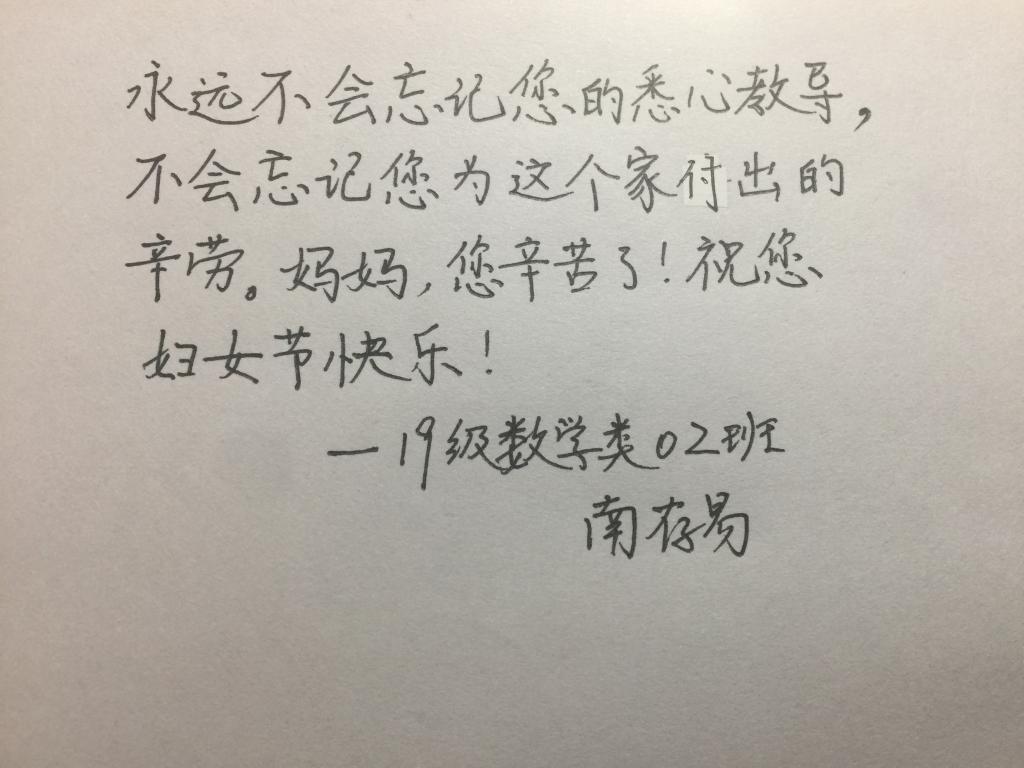 永远不会忘记您的悉心教导，
不会忘记您为这个家付出的
辛劳。妈妈，您辛苦了！祝您
妇女节快乐！
—19级数学类02班
南存易